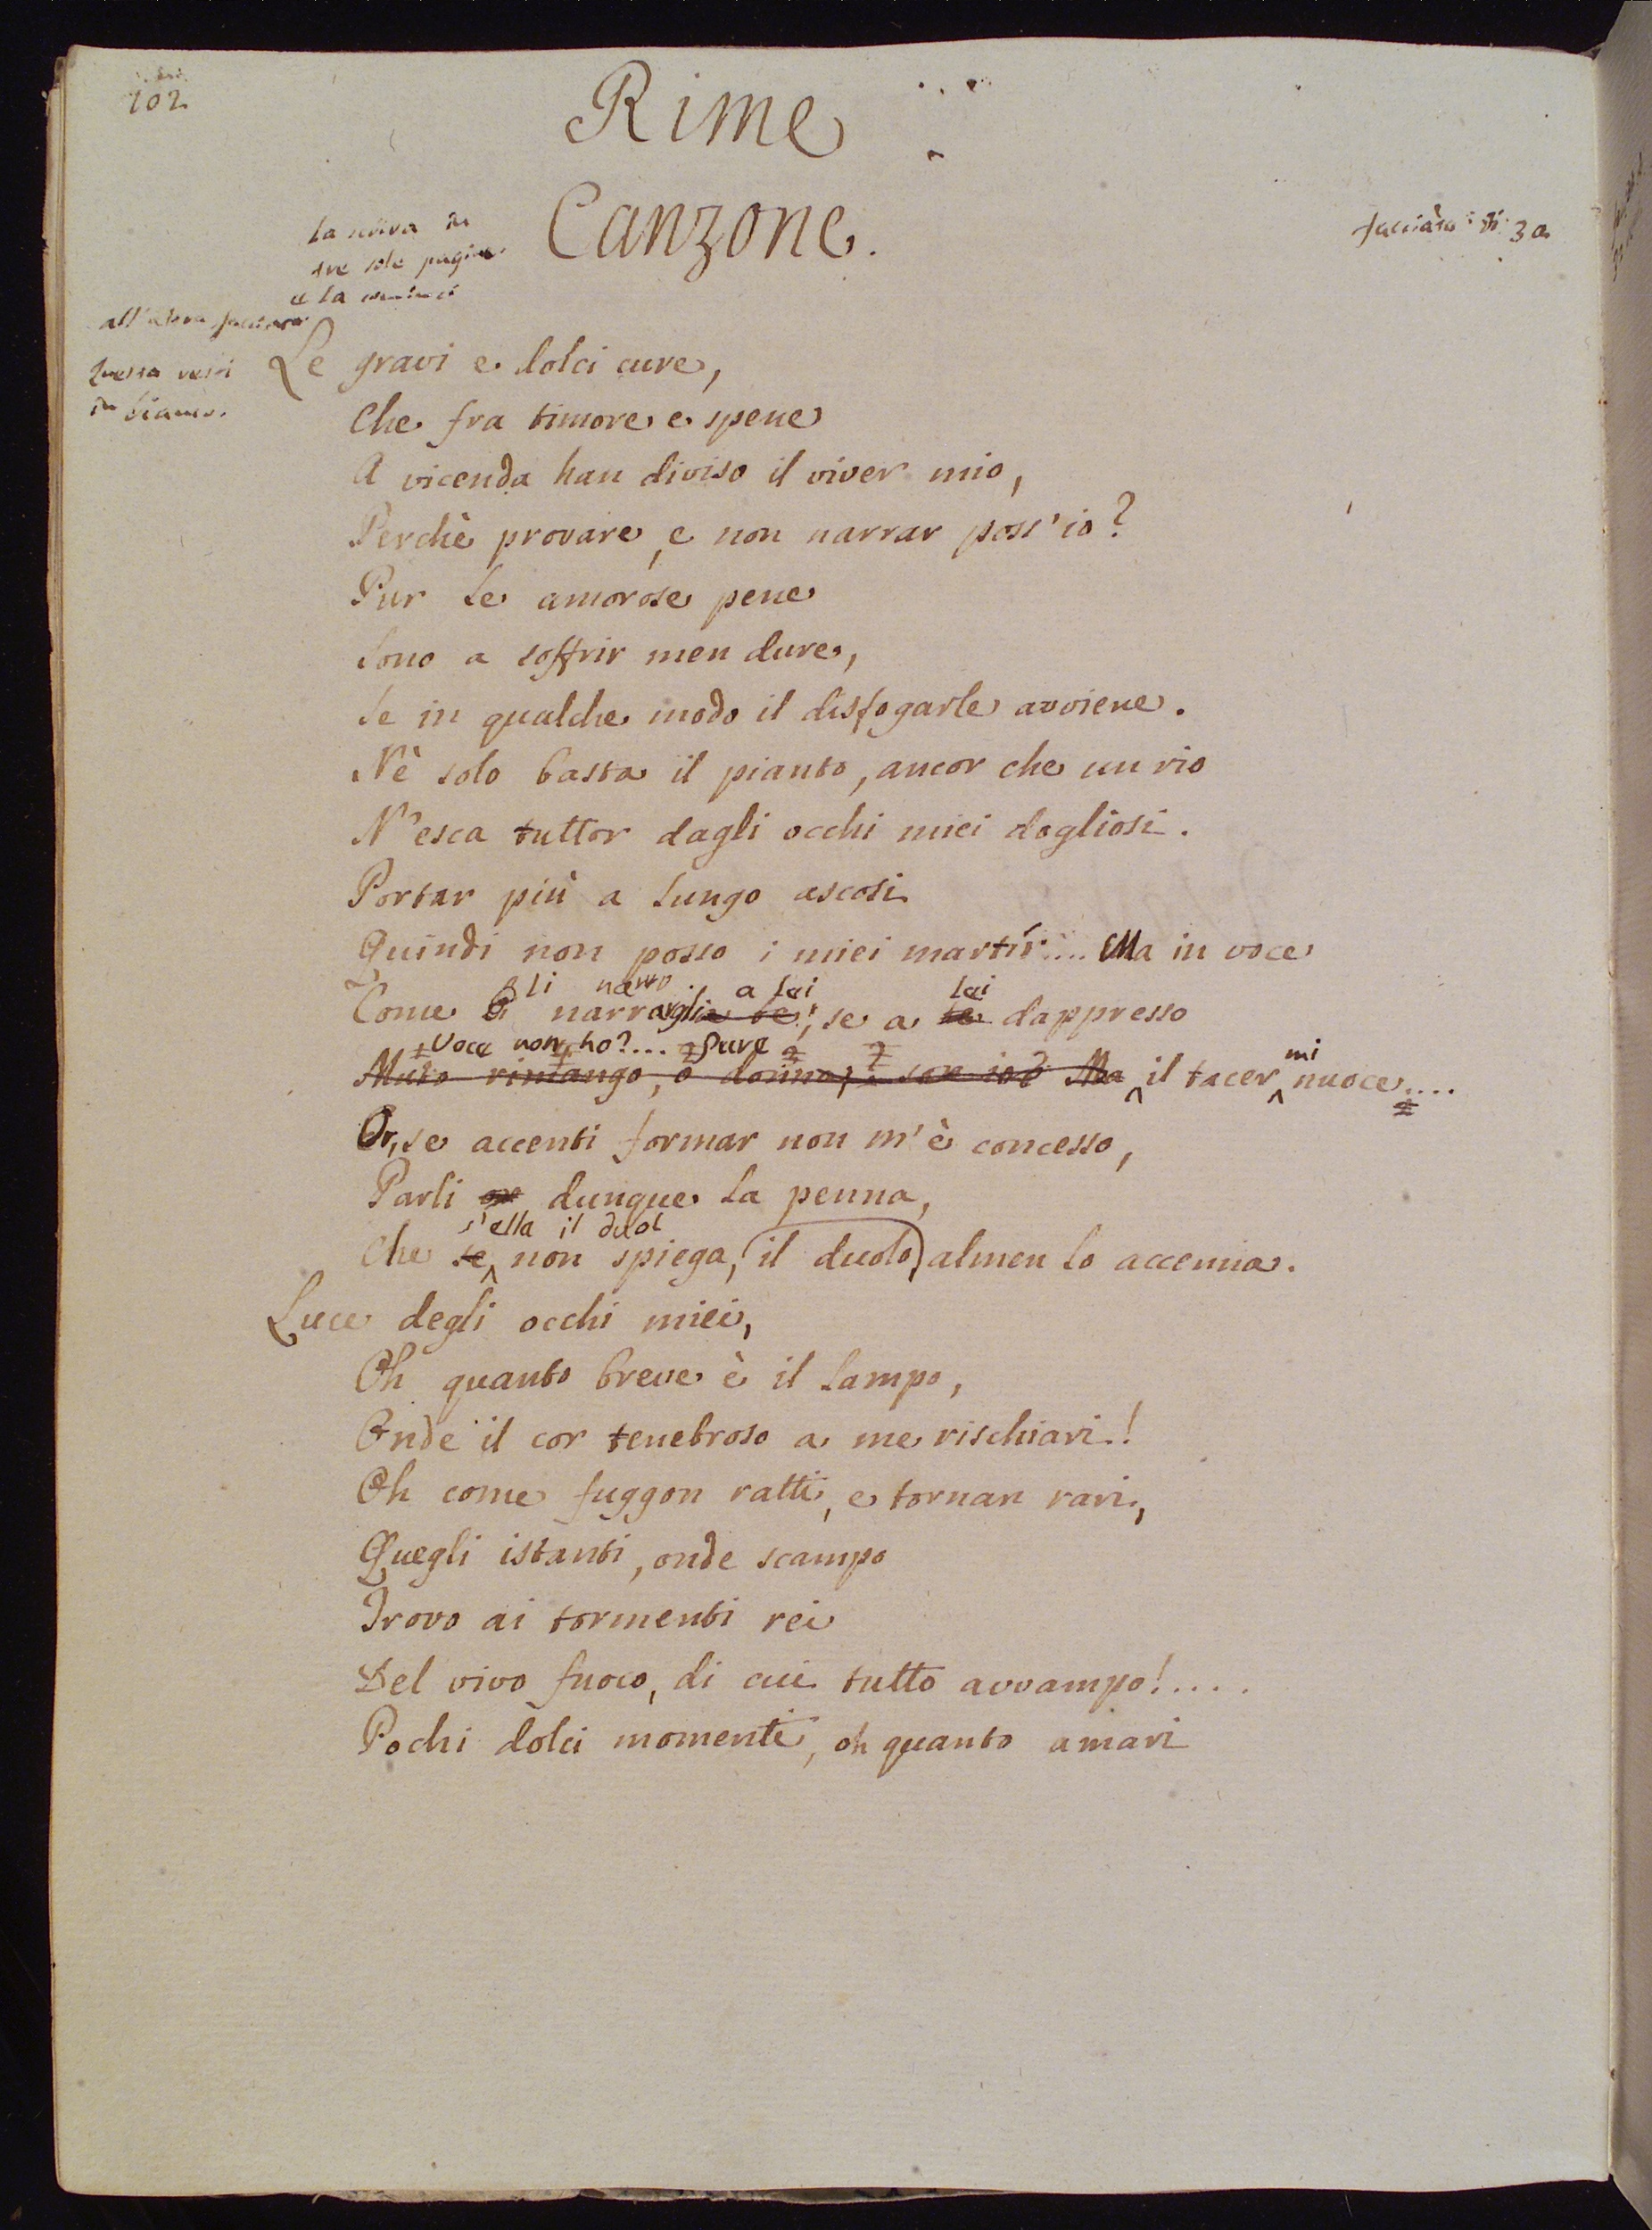 102
Rime
Canzone.
La scriva in
tre sole pagine
e la cominci
all'altra facciata
Questa resti
in bianco.
facciata di 30
Le gravi e dolci cure,
Che fra timore e spene
A vicenda han diviso il viver mio,
Perchè provare, e non narrar poss'io?
Pur le amorose pene
Sono a soffrir men dure,
Se in qualche modo il disfogarle avviene.
Nè solo basta il pianto, ancor che un rio
N'esca tuttor dagli occhi miei dogliosi.
Portar più a lungo ascosi
Quindi non posso i miei martír.... Ma in voce
li narro a lei lei
Come narrargli a te; se a te dappresso
Voce non ho?... Pure mi
Muto rimango, o donna, son io? Ma il tacer nuoce....
Or, se accenti formar non m'è concesso,
Parli dunque la penna,
s'ella il duol
Che se non spiega, (il duolo) almen lo accenna.
Luce degli occhi miei,
Oh quanto breve è il lampo,
Onde il cor tenebroso a me rischiari!
Oh come fuggon ratti, e tornan rari,
Quegli istanti, onde scampo
Trovo ai tormenti rei
Del vivo fuoco, di cui tutto avvampo!....
Pochi dolci momenti, oh quanto amari